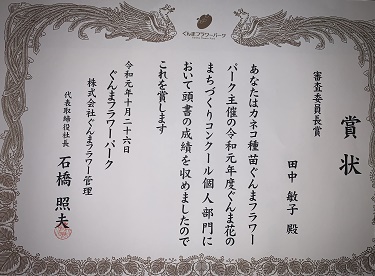 ぐんまフラワーパーク
賞状
審査委員長賞
田中敏子 殿
あなたはカネコ種苗ぐんまフラワー
パーク主催の令和元年度ぐんま花の
まちづくりコンクール個人部門に
おいて頭書の成績を収めましたので
これを賞します
令和元年十月二十六日
ぐんまフラワーパーク
株式会社ぐんまフラワー管理
代表取締役社長 石橋照夫